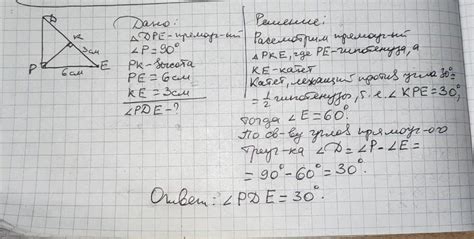 D
K
3см
P
6см
E
Дано:
△DPE-прямоуг-ий
∠P=90°
PK-высота
PE=6см
KE=3см
∠PDE-?
Решение:
Рассмотрим прямоуг-ий
△PKE, где PE-гипотенуза, а
KE-катет
Катет, лежащий против угла 30°=
=1/2 гипотенузы, т.е. ∠KPE=30°,
тогда ∠E=60°.
По св-ву углов прямоуг-ого
треуг-ка ∠D=∠P-∠E=
=90°-60°=30°.
Ответ: ∠PDE=30°.